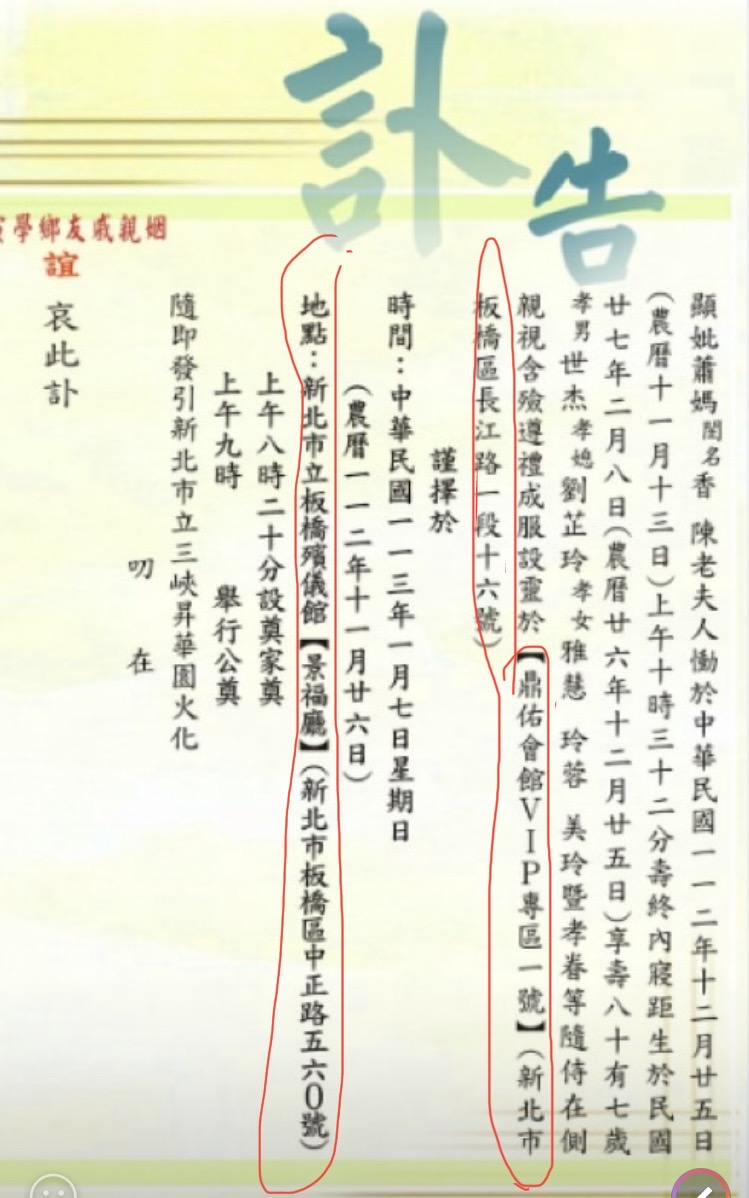 訃告
顯妣蕭媽閨名香 陳老夫人慟於中華民國一一二年十二月廿五日
(農曆十一月十三日)上午十時三十二分壽終內寢距生於民國
廿七年二月八日(農曆廿六年十二月廿五日)享壽八十有七歲
孝男世杰孝媳劉芷玲孝女雅慧 玲蓉 美玲暨孝眷等隨侍在側
親視含殮遵禮成服設靈於【鼎佑會館VIP專區一號】(新北市
板橋區長江路一段十六號)
謹擇於
時間：中華民國一一三年一月七日星期日
(農曆一一二年十一月廿六日)
地點：新北市立板橋殯儀館【景福廳】(新北市板橋區中正路五六0號)
上午八時二十分設奠家奠
上午九時 舉行公奠
隨即發引新北市立三峽昇華園火化
叨在
姻親戚友鄉學
誼
哀此訃